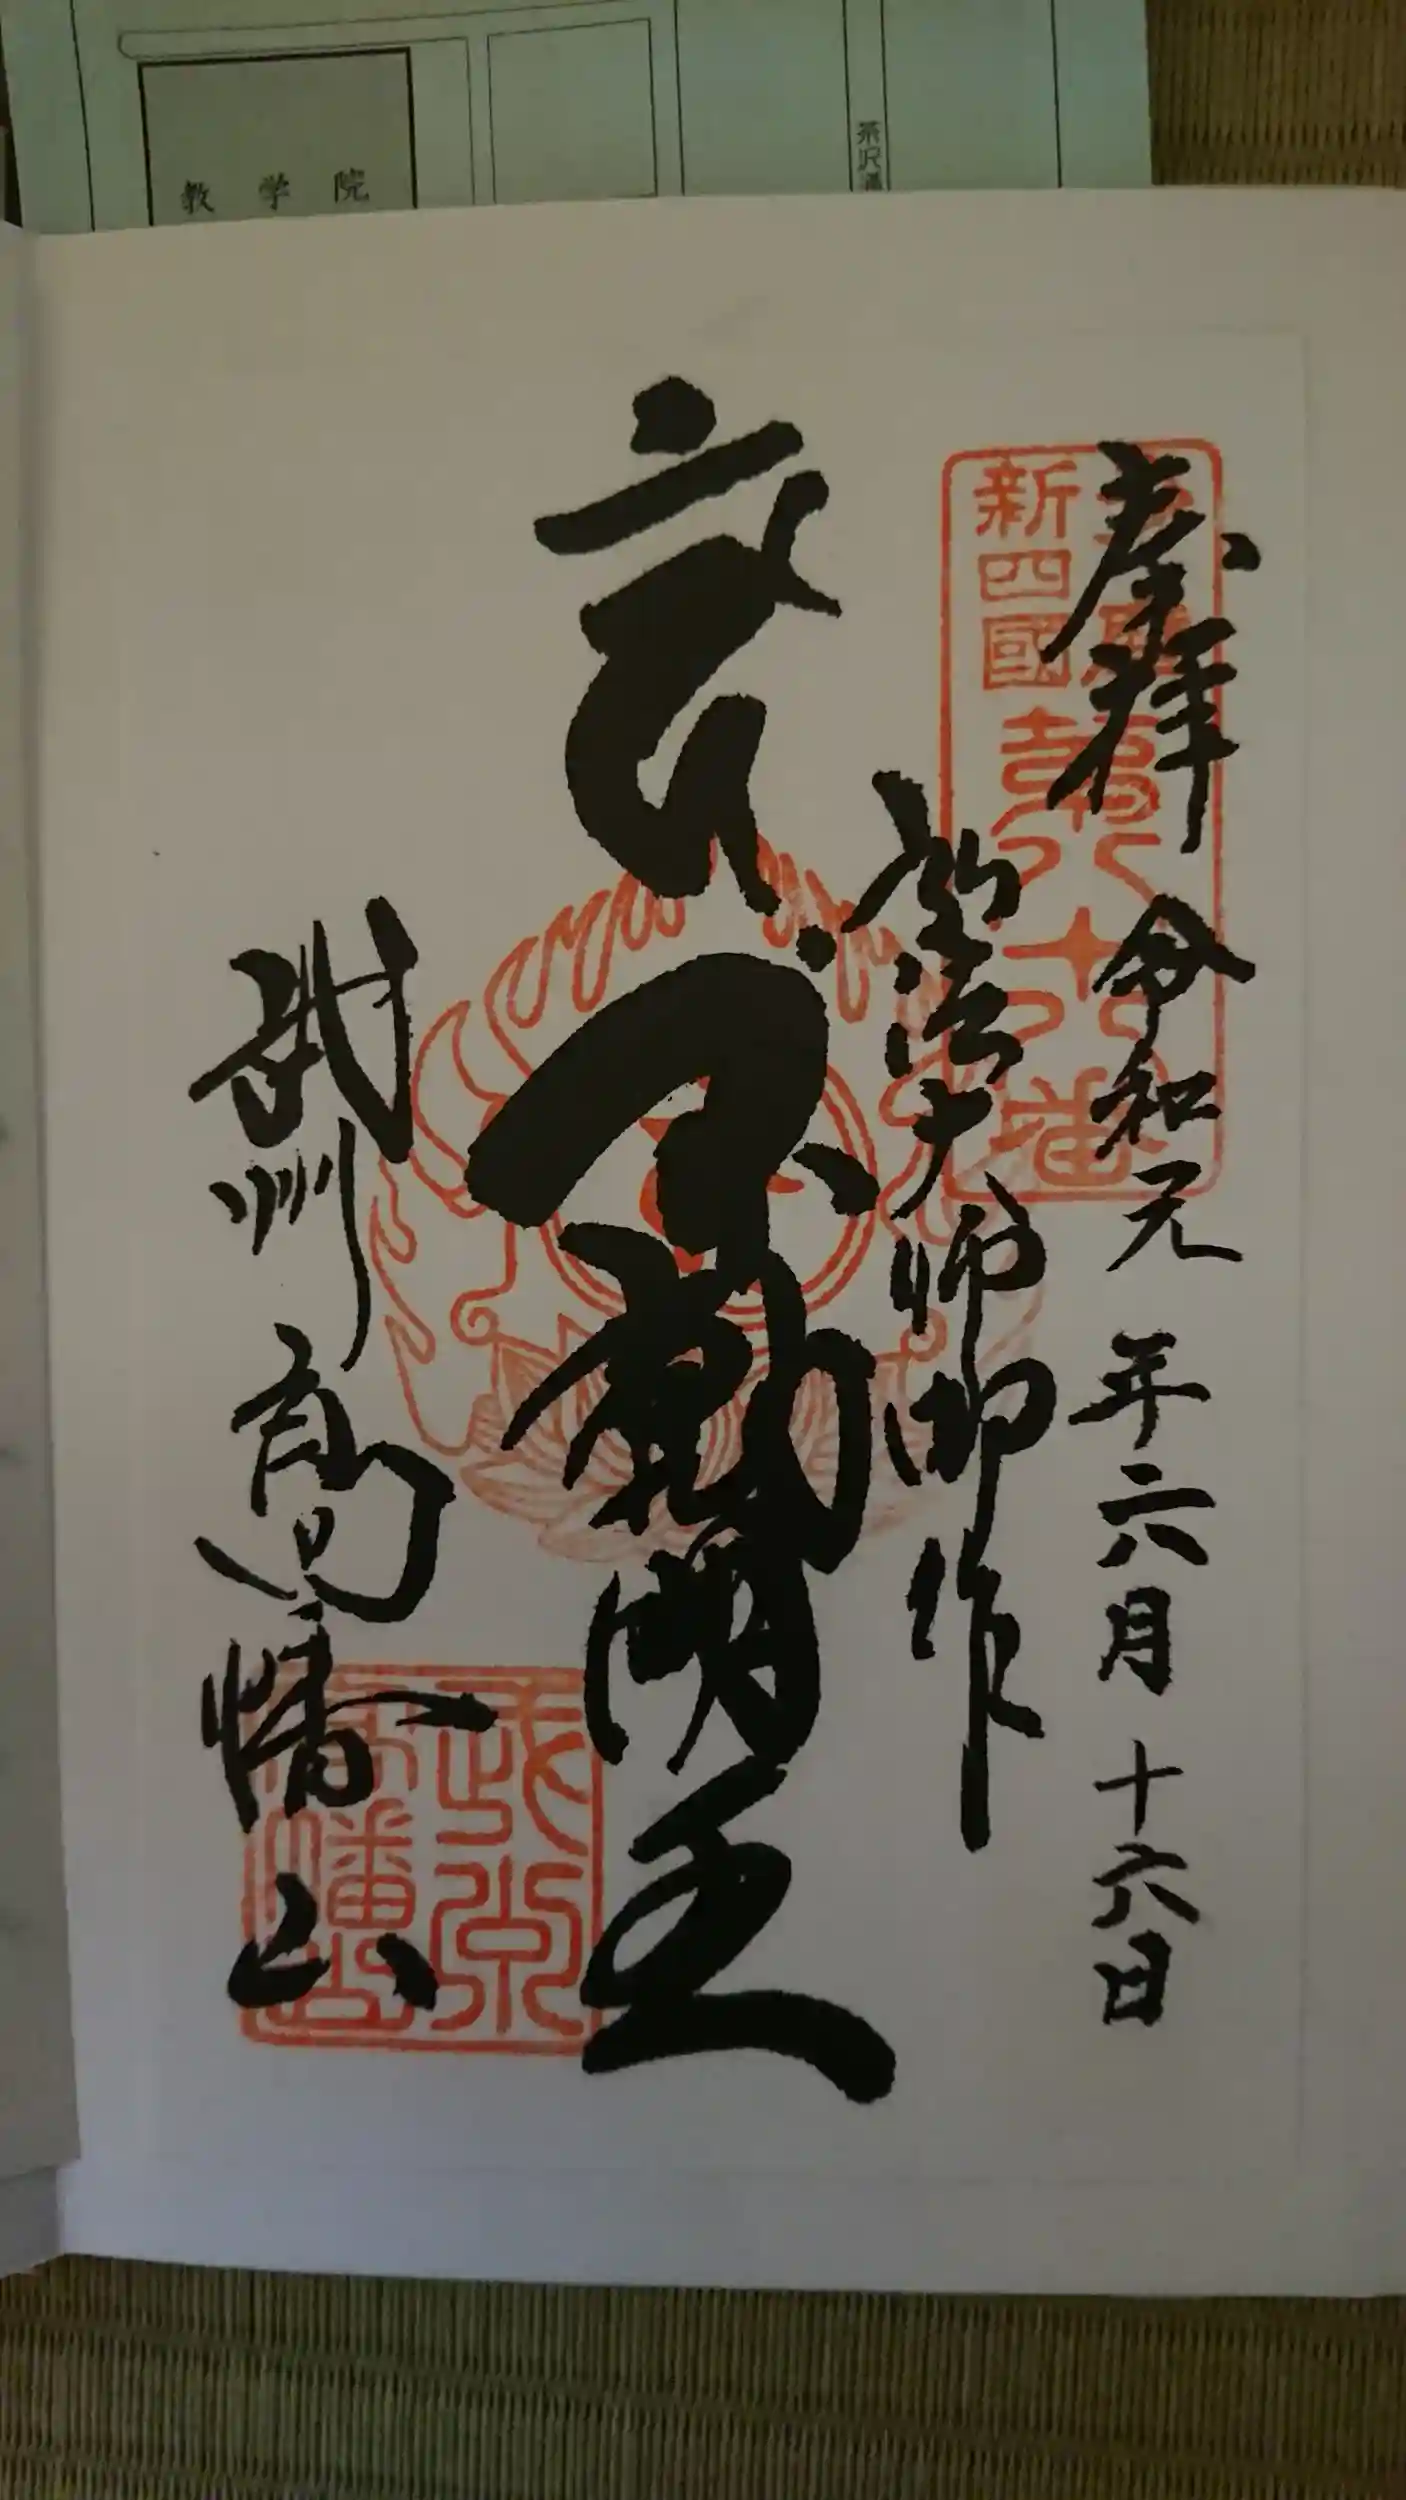 教学院
奉拝 令和元年六月十六日
弘法大師御作
不動明王
武州高幡山
新四國
第八十八番